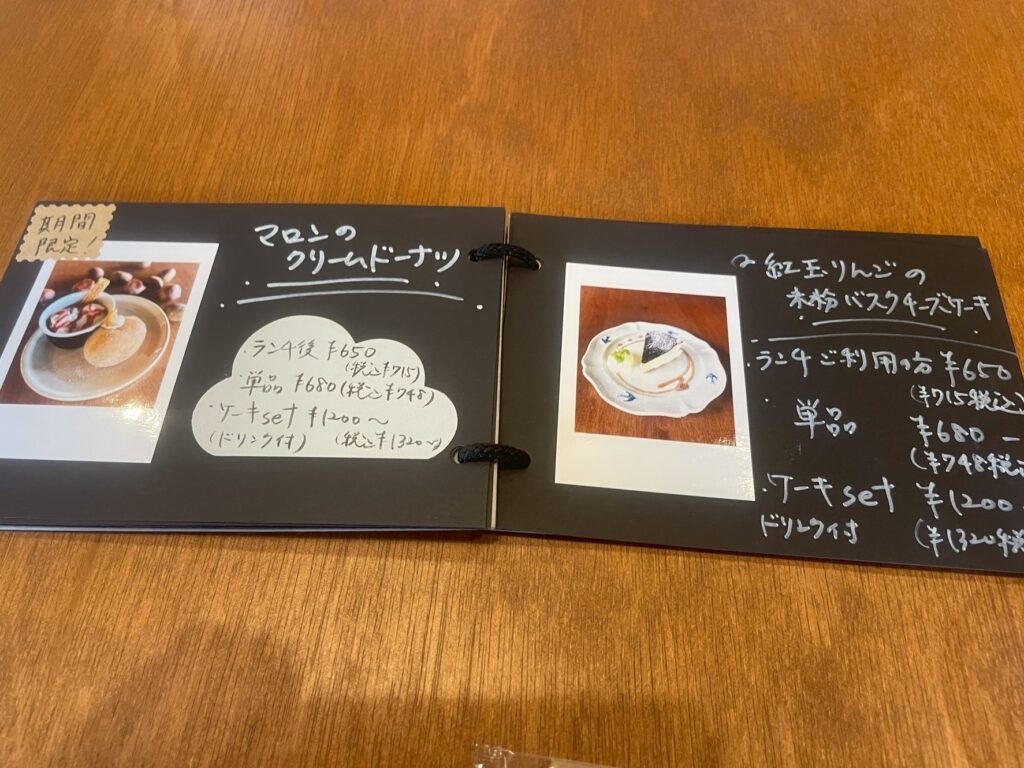 期間
限定!
マロンの
クリームドーナツ
・ランチ後 ¥650
(税込¥715)
・単品 ¥680(税込¥748)
・ケーキset ¥1200〜
(ドリンク付) (税込¥1320〜)
紅玉りんごの
米粉バスクチーズケーキ
・ランチご利用の方 ¥650
(¥715税込)
・単品 ¥680ー
(¥748税込
・ケーキset ¥1200
ドリンク付 (¥1320税